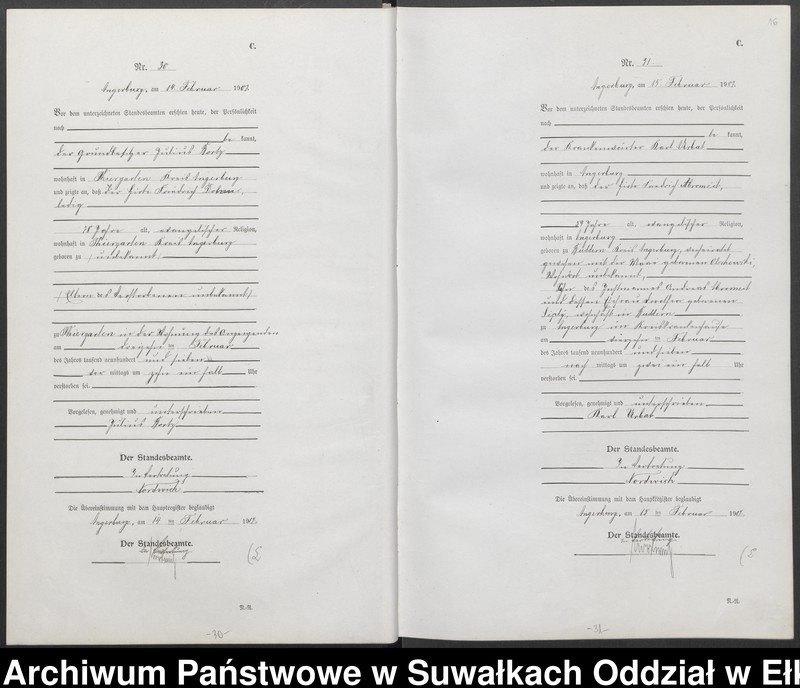 C.
Nr. 30
Angerburg, am 14 Februar 1907.
Vor dem unterzeichneten Standesbeamten erschien heute, der Persönlichkeit
nach
be kannt,
der Grundbesitzer Julius
wohnhaft in Thiergarten Kreis Angerburg
und zeigte an, daß der Hirte Friedrich
ledig
78 Jahre alt, evangelischer Religion,
wohnhaft in Thiergarten Kreis Angerburg
geboren zu unbekannt
(Eltern des Verstorbenen unbekannt)
zu Thiergarten in der Wohnung des Anzeigenden
am dreizehn ten Februar
des Jahres tausend neunhundert und sieben
vor mittags um zehn ein halb Uhr
verstorben sei.
Vorgelesen, genehmigt und unterschrieben
Julius
Der Standesbeamte.
In Vertretung
Nordwich
Die Übereinstimmung mit dem Hauptregister beglaubigt
Angerburg, am 14 ten Februar 1907.
Der Standesbeamte.
In Vertretung.
R.-R.
-30-
C.
Nr. 31
Angerburg, am 15 Februar 1907.
Vor dem unterzeichneten Standesbeamten erschien heute, der Persönlichkeit
nach
be kannt,
der Krankenwärter Karl Urbat
wohnhaft in Angerburg
und zeigte an, daß der Hirte Friedrich
29 Jahre alt, evangelischer Religion,
wohnhaft in Angerburg
geboren zu Buddern Kreis Angerburg, verheiratet
gewesen mit der geborenen
Wohnort unbekannt,
Sohn des Andreas
und dessen Ehefrau geborenen
in Buddern
zu Angerburg im Kreiskrankenhause
am vierzehn ten Februar
des Jahres tausend neunhundert und sieben
nach mittags um zwei ein halb Uhr
verstorben sei.
Vorgelesen, genehmigt und unterschrieben
Karl Urbat
Der Standesbeamte.
In Vertretung
Nordwich
Die Übereinstimmung mit dem Hauptregister beglaubigt
Angerburg, am 15 ten Februar 1907.
Der Standesbeamte.
In Vertretung.
R.-R.
-31-
Archiwum Państwowe w Suwałkach Oddział w Ełk